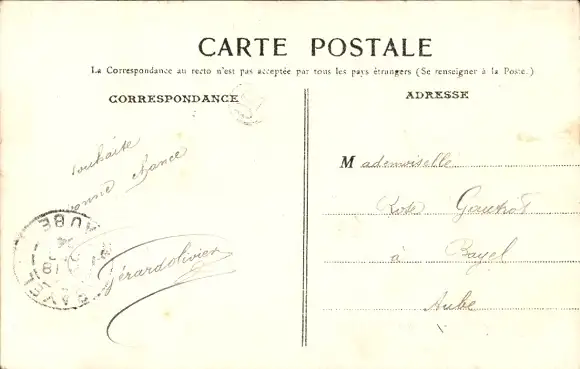 CARTE POSTALE
La Correspondance au recto n'est pas acceptée par tous les pays étrangers (Se renseigner à la Poste.)
CORRESPONDANCE
souhaite
bonne chance
Gérardolivier
BAYEL
AUBE
ADRESSE
Mademoiselle
Rose Gautrot
à Bayel
Aube